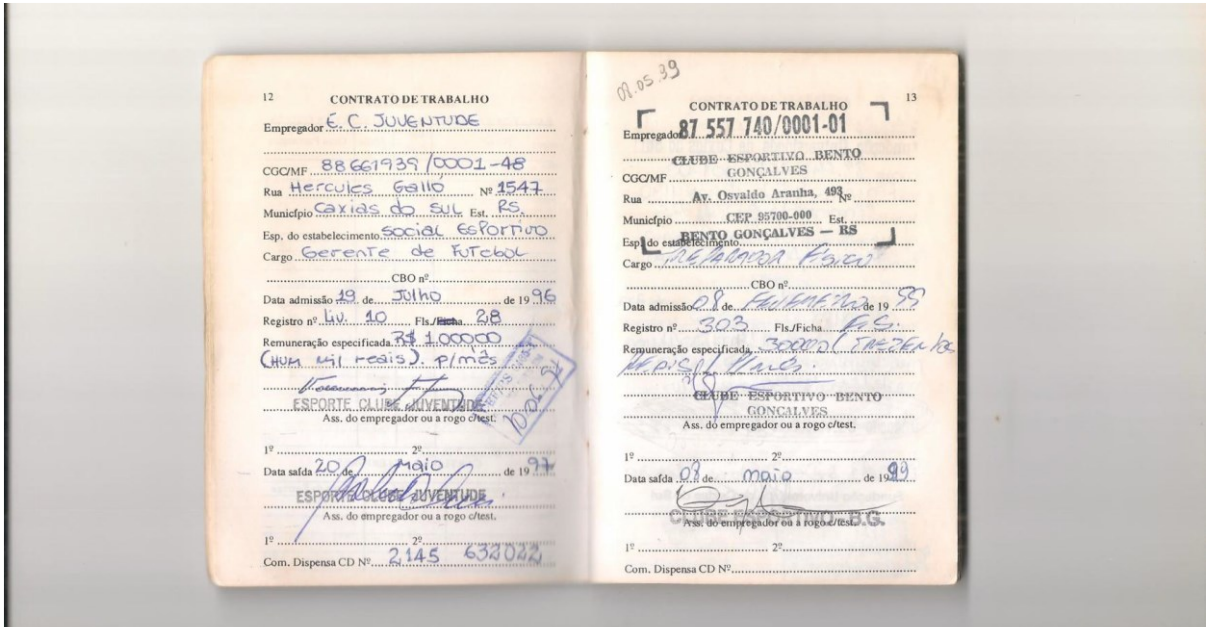 12
CONTRATO DE TRABALHO
Empregador E. C. JUVENTUDE
CGC/MF 88661939/0001-48
Rua Hercules Galló Nº 1547
Município Caxias do Sul Est. RS
Esp. do estabelecimento Social Esportivo
Cargo Gerente de Futebol
CBO nº
Data admissão 19 de Julho de 1996
Registro nº Liv. 10 Fls./Ficha 28
Remuneração especificada R$ 1.000,00
(Hum mil reais). p/mês
ESPORTE CLUBE JUVENTUDE
Ass. do empregador ou a rogo c/test.
1º 2º
Data saída 20 de Maio de 1997
ESPORTE CLUBE JUVENTUDE
Ass. do empregador ou a rogo c/test.
1º 2º
Com. Dispensa CD Nº 2145 632022
08.05.99
13
CONTRATO DE TRABALHO
Empregador 87 557 740/0001-01
CLUBE ESPORTIVO BENTO
GONÇALVES
CGC/MF
Rua Av. Osvaldo Aranha, 493 Nº
Município CEP 95700-000 Est.
BENTO GONÇALVES — RS
Esp. do estabelecimento
Cargo PREPARADOR FÍSICO
CBO nº
Data admissão 08 de FEVEREIRO de 1999
Registro nº 303 Fls./Ficha
Remuneração especificada 300,00 (TREZENTOS
REAIS) P/mês.
CLUBE ESPORTIVO BENTO
GONÇALVES
Ass. do empregador ou a rogo c/test.
1º 2º
Data saída 08 de maio de 1999
CLUBE ESPORTIVO B.G.
Ass. do empregador ou a rogo c/test.
1º 2º
Com. Dispensa CD Nº